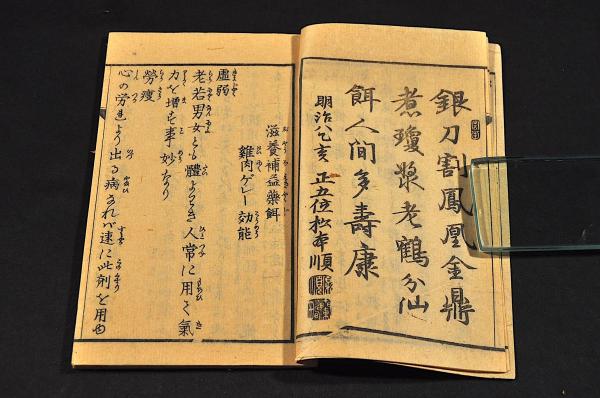 銀刀割鳳凰金鼎
煮瓊漿老鶴分仙
餌人間多壽康
明治乙亥 正五位松本順
滋養補益藥餌
雞肉ゲレー効能
虚弱
老若男女とも體よはき人常に用て氣
力を増す事妙なり
勞瘦
心の労れより出る病なれバ速に此剤を用ゆ